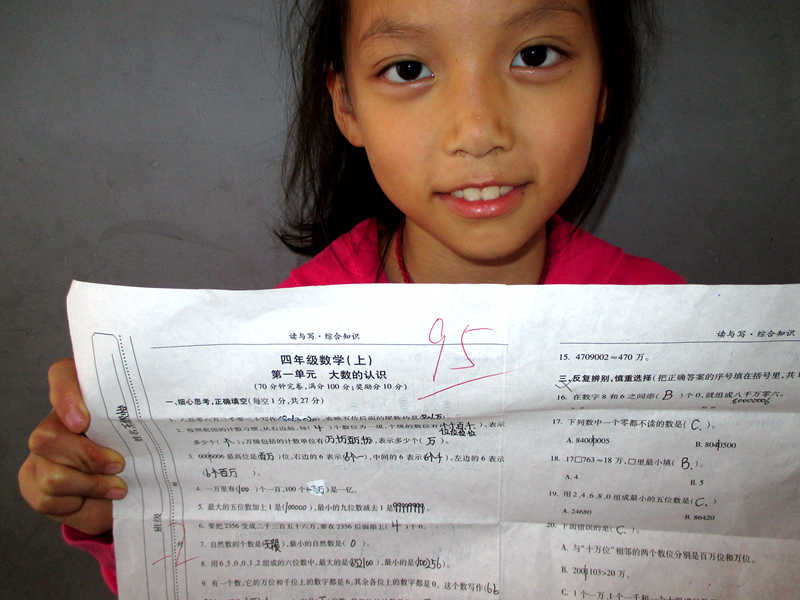 读与写·综合知识
95
四年级数学(上)
第一单元 大数的认识
(70分钟完卷,满分100分;奖励分10分)
一、细心思考,正确填空(每空1分,共27分)
(4)个数位为一级,
多少个(个),万级包括的计数单位有 表示多少个(万)。
6006006最高位是(百万)位,右边的6表示(6个一),中间的6表示(6个千),左边的6表示
(6个百万)。
4. 一万里有(100)个一百,100个 是一亿。
5. 最大的五位数加上1是(100000),最小的九位数减去1是99999999。
6. 要把2356变成二千三百五十六万,要在2356后面添上(4)个0。
7. 自然数的个数是(无限),最小的自然数是(0)。
8. 用6、5、0、0、1、2组成的六位数中,最大的是(652100),最小的是(100256)。
9. 有一个数,它的万位和千位上的数字都是6,其余各位上的数字都是0。这个数写作(66
班级
-2
读与写·综合知识
15. 4709002≈470万。
三、反复辨别,慎重选择(把正确答案的序号填在括号里,共
16. 在数字8和6之间添(B)个0,就组成八千万零六。
80000006
17. 下列数中一个零都不读的数是(C.)
A. 84000005 B. 8040500
18. 17□763≈18万,□里最小填(B.)
A. 4 B. 5
19. 用2、4、6、8、0组成最小的五位数是(C.)
A. 24680 B. 86420
20. 下面错误的是(C.)。
A. 与“十万位”相邻的两个数位分别是百万位和万位。
B. 200103>20万。
C. 1个一万、1个一千和一